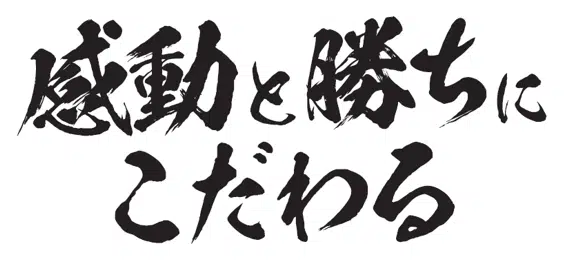 感動と勝ちに
こだわる